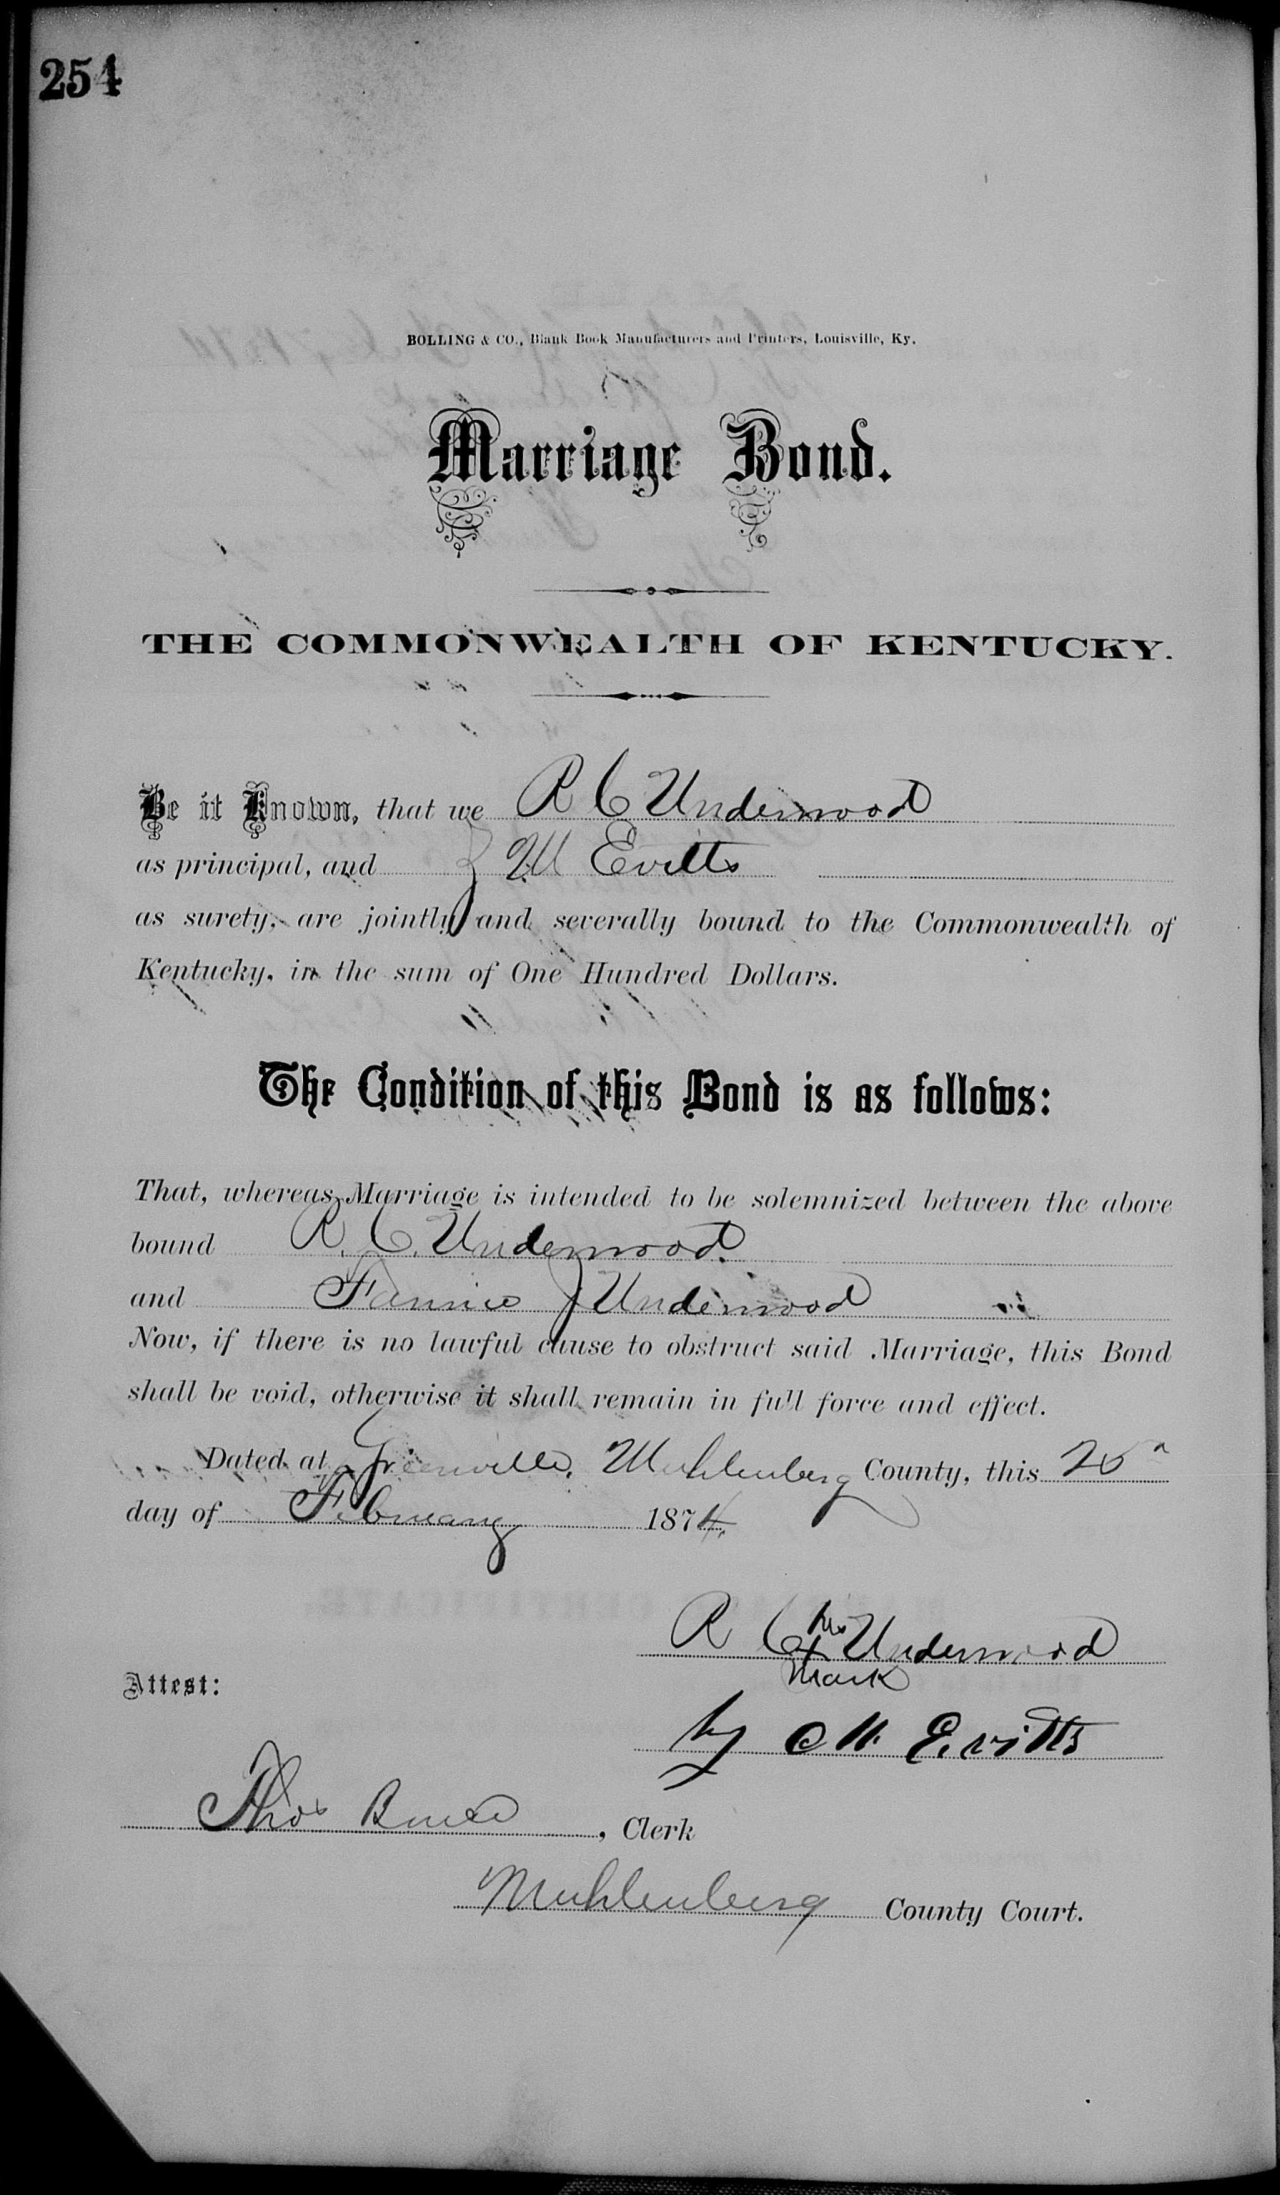 254
BOLLING & CO., Blank Book Manufacturers and Printers, Louisville, Ky.
Marriage Bond.
THE COMMONWEALTH OF KENTUCKY.
Be it Known, that we R C Underwood
as principal, and J M Evitts
as surety, are jointly and severally bound to the Commonwealth of
Kentucky, in the sum of One Hundred Dollars.
The Condition of this Bond is as follows:
That, whereas, Marriage is intended to be solemnized between the above
bound R. C. Underwood.
and Fannie J Underwood
Now, if there is no lawful cause to obstruct said Marriage, this Bond
shall be void, otherwise it shall remain in full force and effect.
Dated at Greenville, Muhlenberg County, this
day of February 1874.
his
R C X Underwood
mark
by M. Evitts
Attest:
Thos Bruce, Clerk
Muhlenberg County Court.